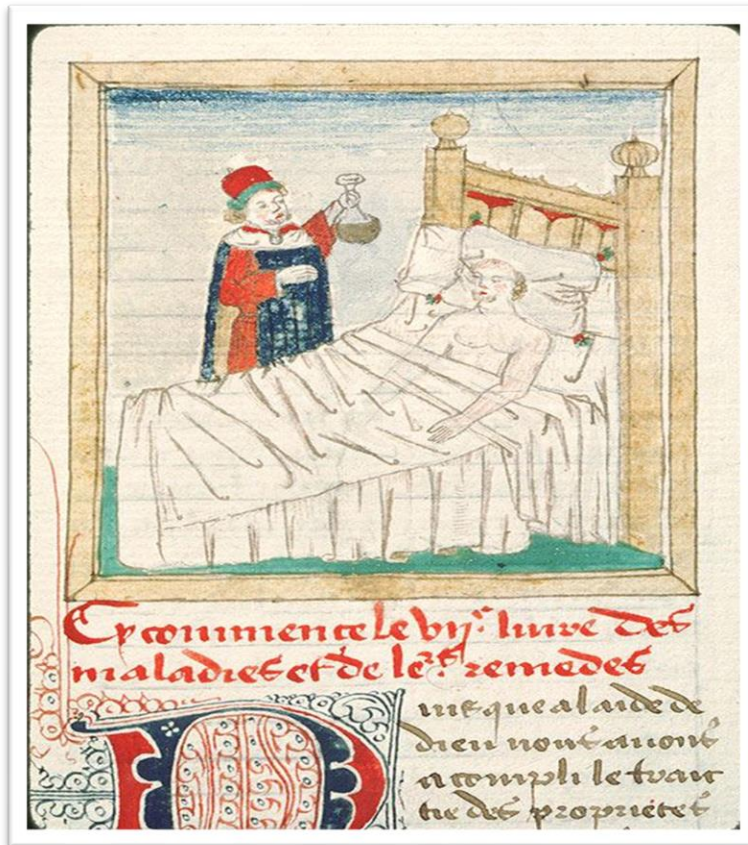 Cy commence le vije liure des
maladies et de lers remedes
Puis que a laide de
dieu nous auons
acompli le traic
tie des proprietes